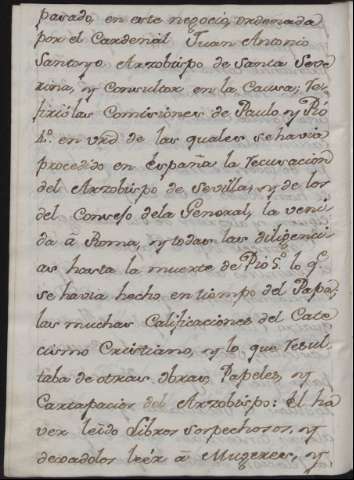 parado, en este negocio, ordenada
por el Cardenal Juan Antonio
Santoyo Arzobispo de Santa Seve
rina, y Consultor en la Causa; re
firió las Comisiones de Paulo, y Pio
4.º en vrd de las quales se havia
procedido en España la recusacion
del Arzobispo de Sevilla, y de los
del Consejo dela General, la veni
da à Roma, y todas las diligenci
as hasta la muerte de Pio 5.º lo q.e
se havia hecho en tiempo del Papa,
las muchas Calificaciones del Cate
cismo Christiano, y lo que resul
taba de otras obras, Papeles, y
Cartapacios del Arzobispo: el ha
ver leìdo Libros sospechosos, y
dexadolos leér à Mugeres, y